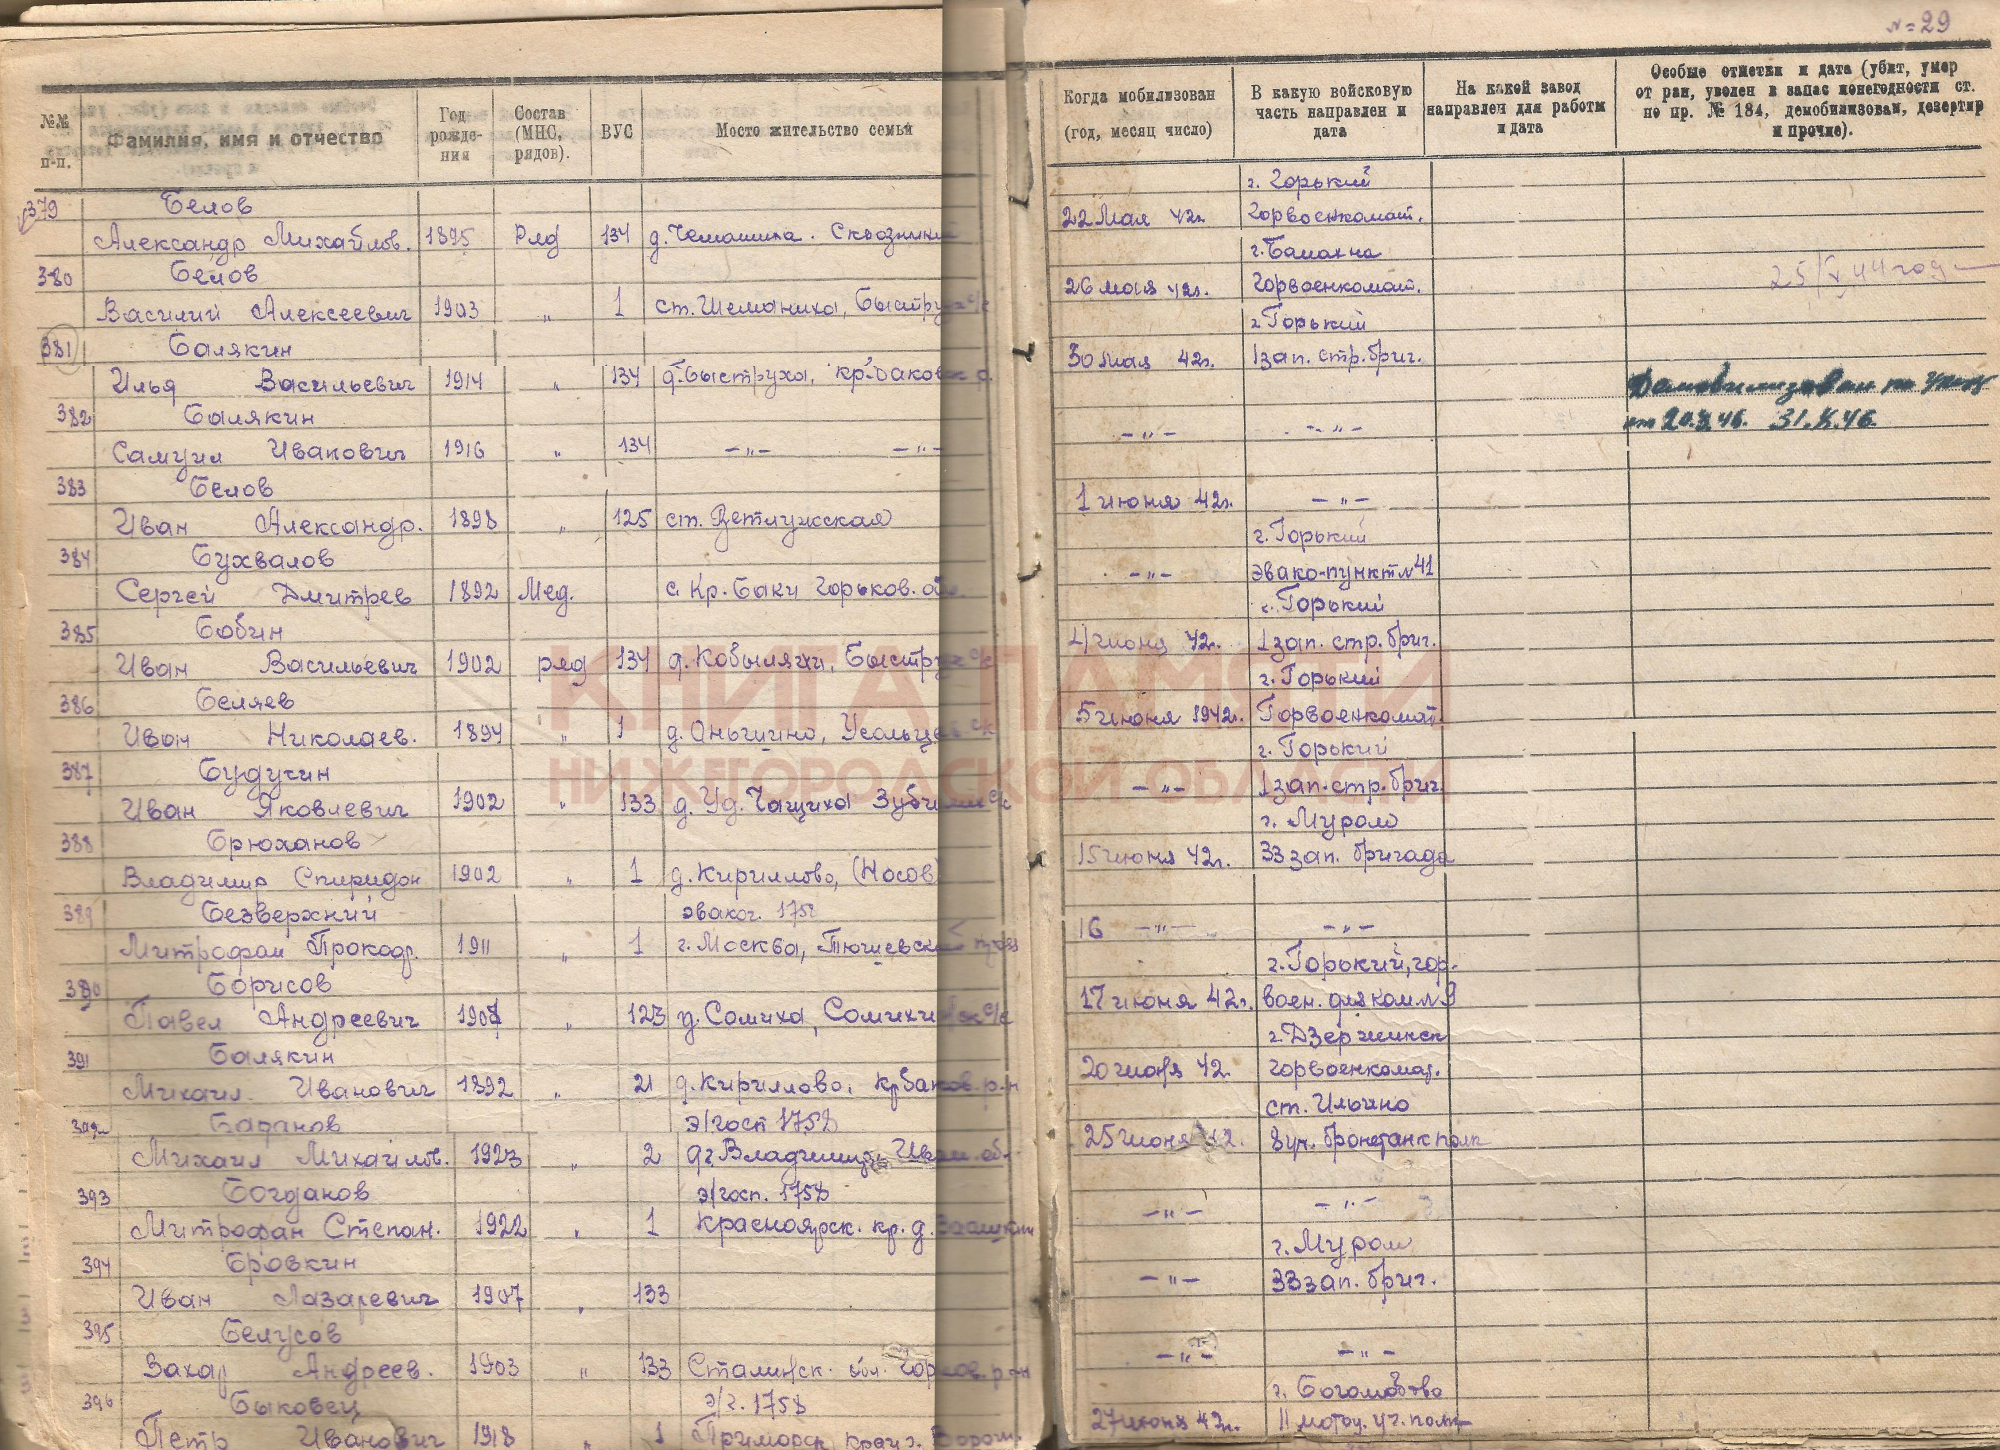 №№ п-п.
Фамилия, имя и отчество
Год рожде-ния
Состав (МНС, рядов).
ВУС
Место жительство семьи
379 Белов
Александр Михайлов. 1895 Ряд 134 д. Чемашиха.
380 Белов
Василий Алексеевич 1903 „ 1 ст. Шеманиха, Быструх с/с
381 Балякин
Илья Васильевич 1914 „ 134 д. Быструха,
382 Балякин
Самуил Иванович 1916 „ 134 -„- -„-
383 Белов
Иван Александр. 1898 „ 125 ст. Ветлужская
384 Бухвалов
Сергей Дмитрев 1892 Мед. с. Кр. Баки Горьков.
385 Бобин
Иван Васильевич 1902 ряд 134 д. Кобыляги, Быструх с/с
386 Беляев
Иван Николаев. 1894 „ 1 д. Аньшино, Усольцев с/с
387 Будучин
Иван Яковлевич 1902 „ 133 д. Уд. Чащиха
388 Брюханов
Владимир Спиридон 1902 „ 1 д. Кириллово, (Носов)
389 Безверхний 1758
Митрофан 1911 „ 1 г. Москва,
390 Борисов
Павел Андреевич „ 123 д. Сомиха,
391 Балякин
Михаил Иванович 1892 „ 21 д. Кириллово, р-н
392 Баданов э/госп 1758
Михаил Михайлов. 1923 „ 2
393 Богданов э/госп. 1758
Митрофан Степан. 1922 „ 1 Красноярск. кр. д.
394 Бровкин
Иван Лазаревич 1907 „ 133
395 Белусов
Захар Андреев. 1903 „ 133 Сталинск. обл. р-н
396 Быковец э/г. 1758
Петр Иванович 1918 „ 1 Приморск край
№=29
Когда мобилизован (год, месяц число)
В какую войсковую часть направлен и дата
На какой завод направлен для работы и дата
Особые отметки и дата (убит, умер от ран, уволен в запас понегодности ст. по пр. № 184, демобилизован, дезертир и прочие).
г. Горький
22 Мая 42г. Горвоенкомат.
г. Балахна
26 мая 42г. Горвоенкомат.
г. Горький
30 мая 42г. 1 зап. стр. бриг.
Демобилизован по указу
-„- -„- от 20.3.46. 31.X.46.
1 июня 42г. -„-
г. Горький
-„- эвако-пункт №41
г. Горький
4 июня 42. 1 зап. стр. бриг.
г. Горький
5 июня 1942г. Горвоенкомат.
г. Горький
-„- 1 зап. стр. бриг.
г. Муром
15 июня 42г. 33 зап. бригада
16 -„- -„-
г. Горький, гор.
17 июня 42г. воен.
г. Дзержинск
20 июня 42. Горвоенкомат.
ст. Ильино
25 июня 42. 8 уч. бронетанк полк
-„- -„-
г. Муром
-„- 33 зап. бриг.
-„- -„-
27 июня 42г. 11 мотоц. уч. полк
КНИГА ПАМЯТИ
НИЖЕГОРОДСКОЙ ОБЛАСТИ